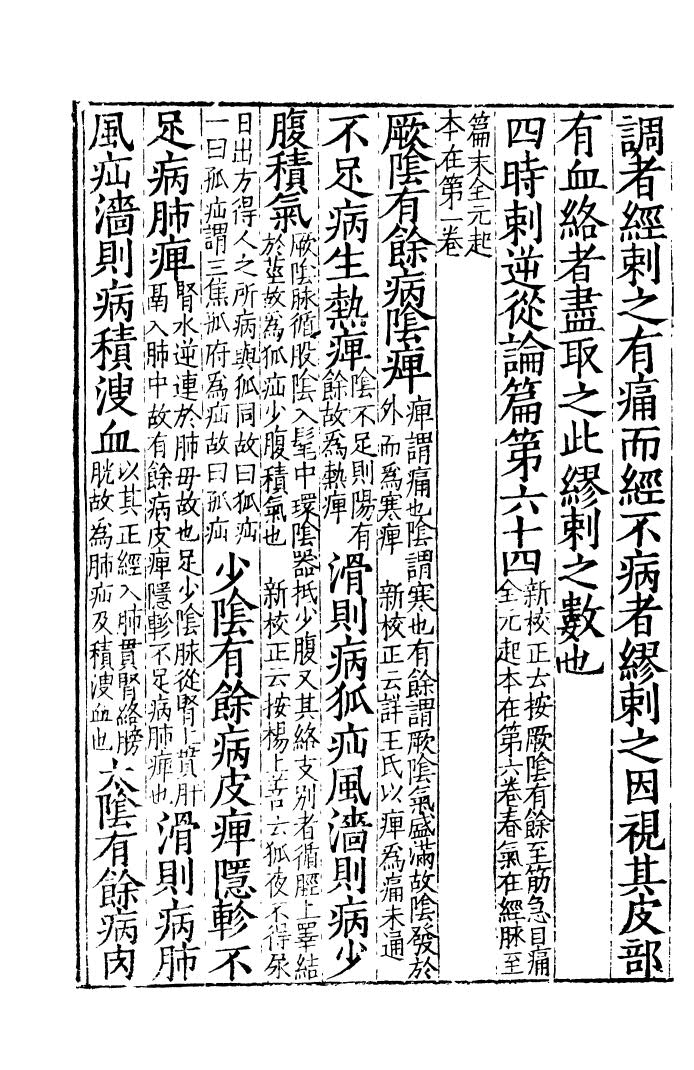 調者經刺之有痛而經不病者繆刺之因視其皮部
有血絡者盡取之此繆刺之數也
四時刺逆從論篇第六十四
新校正云按厥陰有餘至筋急目痛
全元起本在第六卷春氣在經脉至
篇末全元起
本在第一卷
厥陰有餘病陰痺
痺謂痛也陰謂寒也有餘謂厥陰氣盛滿故陰發於
外而爲寒痺　新校正云詳王氏以痺爲痛未通
不足病生熱痺
陰不足則陽有
餘故爲熱痺
滑則病狐疝風濇則病少
腹積氣
厥陰脉循股陰入髦中環陰器抵少腹又其絡支別者循脛上睾結
於莖故爲狐疝少腹積氣也　新校正云按楊上善云狐夜不得尿
日出方得人之所病與狐同故曰狐疝
一曰孤疝謂三焦孤府爲疝故曰孤疝
少陰有餘病皮痺隱軫不
足病肺痺
腎水逆連於肺母故也足少陰脉從腎上貫肝
鬲入肺中故有餘病皮痺隱軫不足病肺痺也
滑則病肺
風疝濇則病積溲血
以其正經入肺貫腎絡膀
胱故爲肺疝及積溲血也
太陰有餘病肉